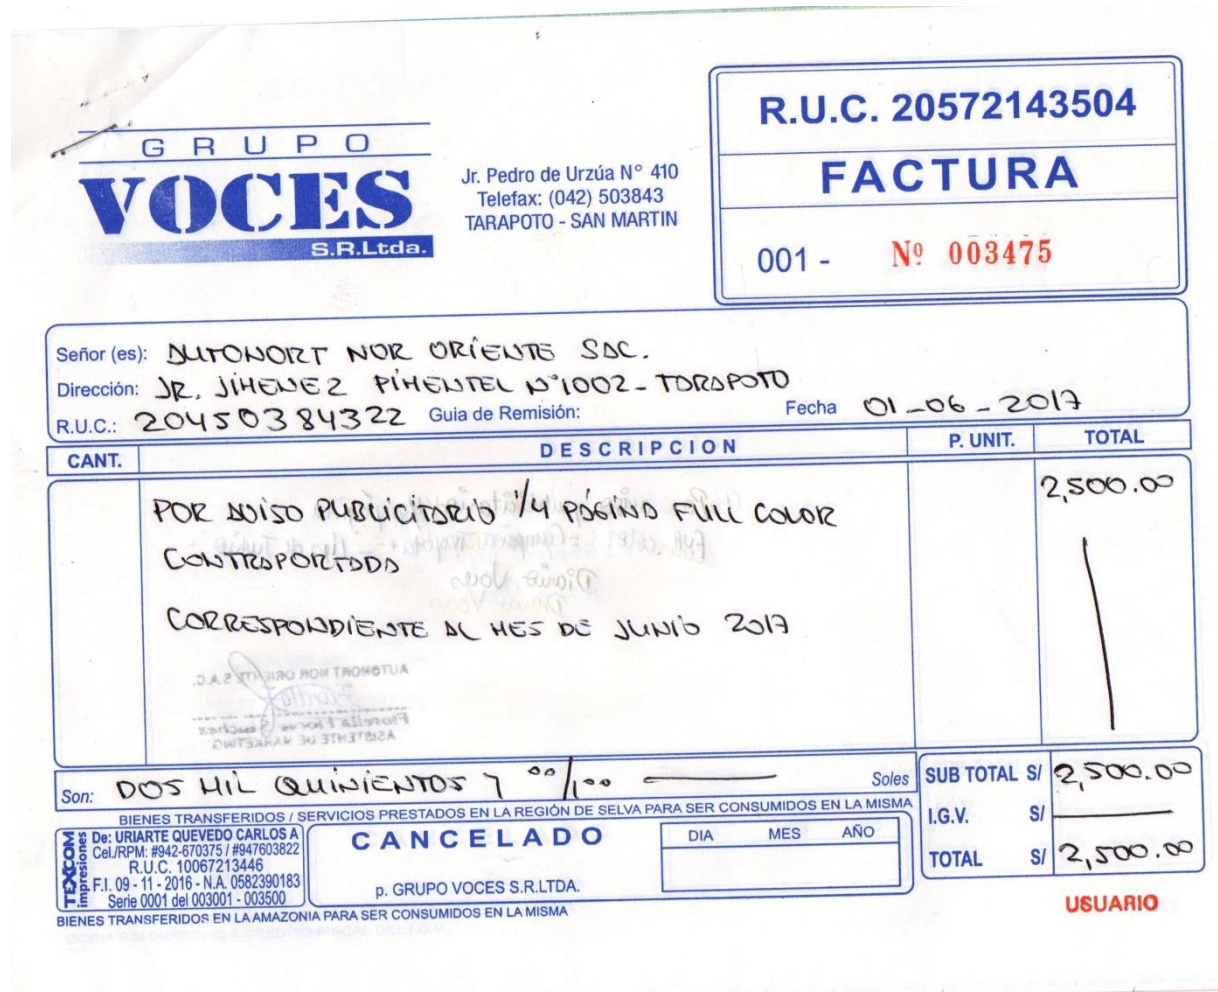 GRUPO
VOCES
S.R.Ltda.
Jr. Pedro de Urzúa N° 410
Telefax: (042) 503843
TARAPOTO - SAN MARTIN
R.U.C. 20572143504
FACTURA
001 - Nº 003475
Señor (es): AUTONORT NOR ORIENTE SAC.
Dirección: JR. JIMENEZ PIMENTEL N°1002 - TARAPOTO
R.U.C.: 20450384322 Guia de Remisión: Fecha 01-06-2017
CANT. DESCRIPCION P. UNIT. TOTAL
POR AVISO PUBLICITARIO 1/4 PÁGINA FULL COLOR 2,500.00
CONTRAPORTADA
CORRESPONDIENTE AL MES DE JUNIO 2017
AUTONORT NOR ORIENTE S.A.C.
ASISTENTE DE MARKETING
Son: DOS MIL QUINIENTOS Y 00/100 Soles
SUB TOTAL S/ 2,500.00
I.G.V. S/
TOTAL S/ 2,500.00
BIENES TRANSFERIDOS / SERVICIOS PRESTADOS EN LA REGIÓN DE SELVA PARA SER CONSUMIDOS EN LA MISMA
TEXCOM
impresiones
De: URIARTE QUEVEDO CARLOS A
Cel./RPM: #942-670375 / #947603822
R.U.C. 10067213446
F.I. 09 - 11 - 2016 - N.A. 0582390183
Serie 0001 del 003001 - 003500
CANCELADO
p. GRUPO VOCES S.R.LTDA.
DIA MES AÑO
BIENES TRANSFERIDOS EN LA AMAZONIA PARA SER CONSUMIDOS EN LA MISMA
USUARIO